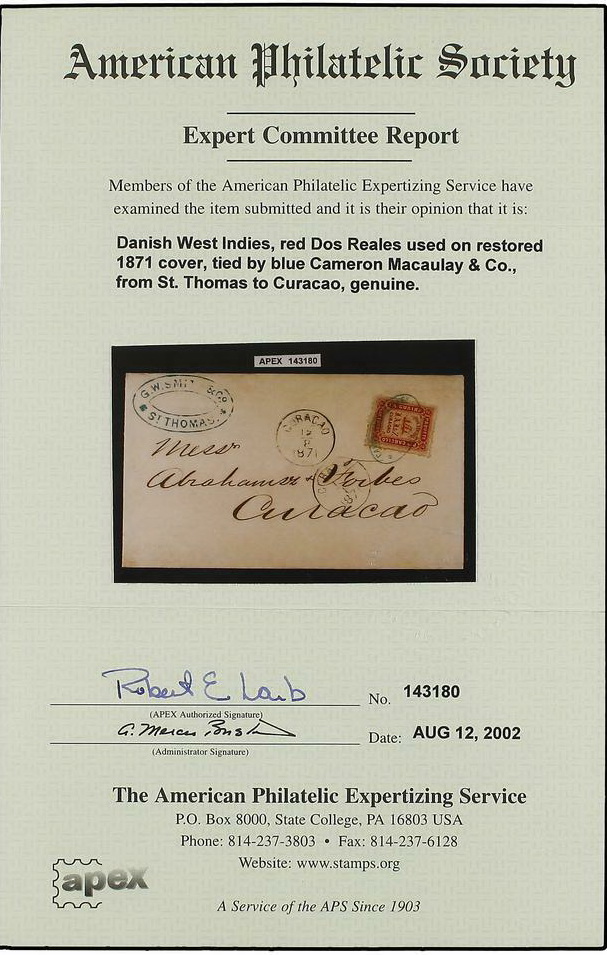 American Philatelic Society
Expert Committee Report
Members of the American Philatelic Expertizing Service have
examined the item submitted and it is their opinion that it is:
Danish West Indies, red Dos Reales used on restored
1871 cover, tied by blue Cameron Macaulay & Co.,
from St. Thomas to Curacao, genuine.
APEX 143180
G.W. SMITH & Co.
St THOMAS
CURACAO
12
8
1871
Messrs
Abrahamsz & Forbes
Curacao
Robert E Lamb
No. 143180
(APEX Authorized Signature)
Date: AUG 12, 2002
(Administrator Signature)
The American Philatelic Expertizing Service
P.O. Box 8000, State College, PA 16803 USA
Phone: 814-237-3803 • Fax: 814-237-6128
Website: www.stamps.org
apex
A Service of the APS Since 1903